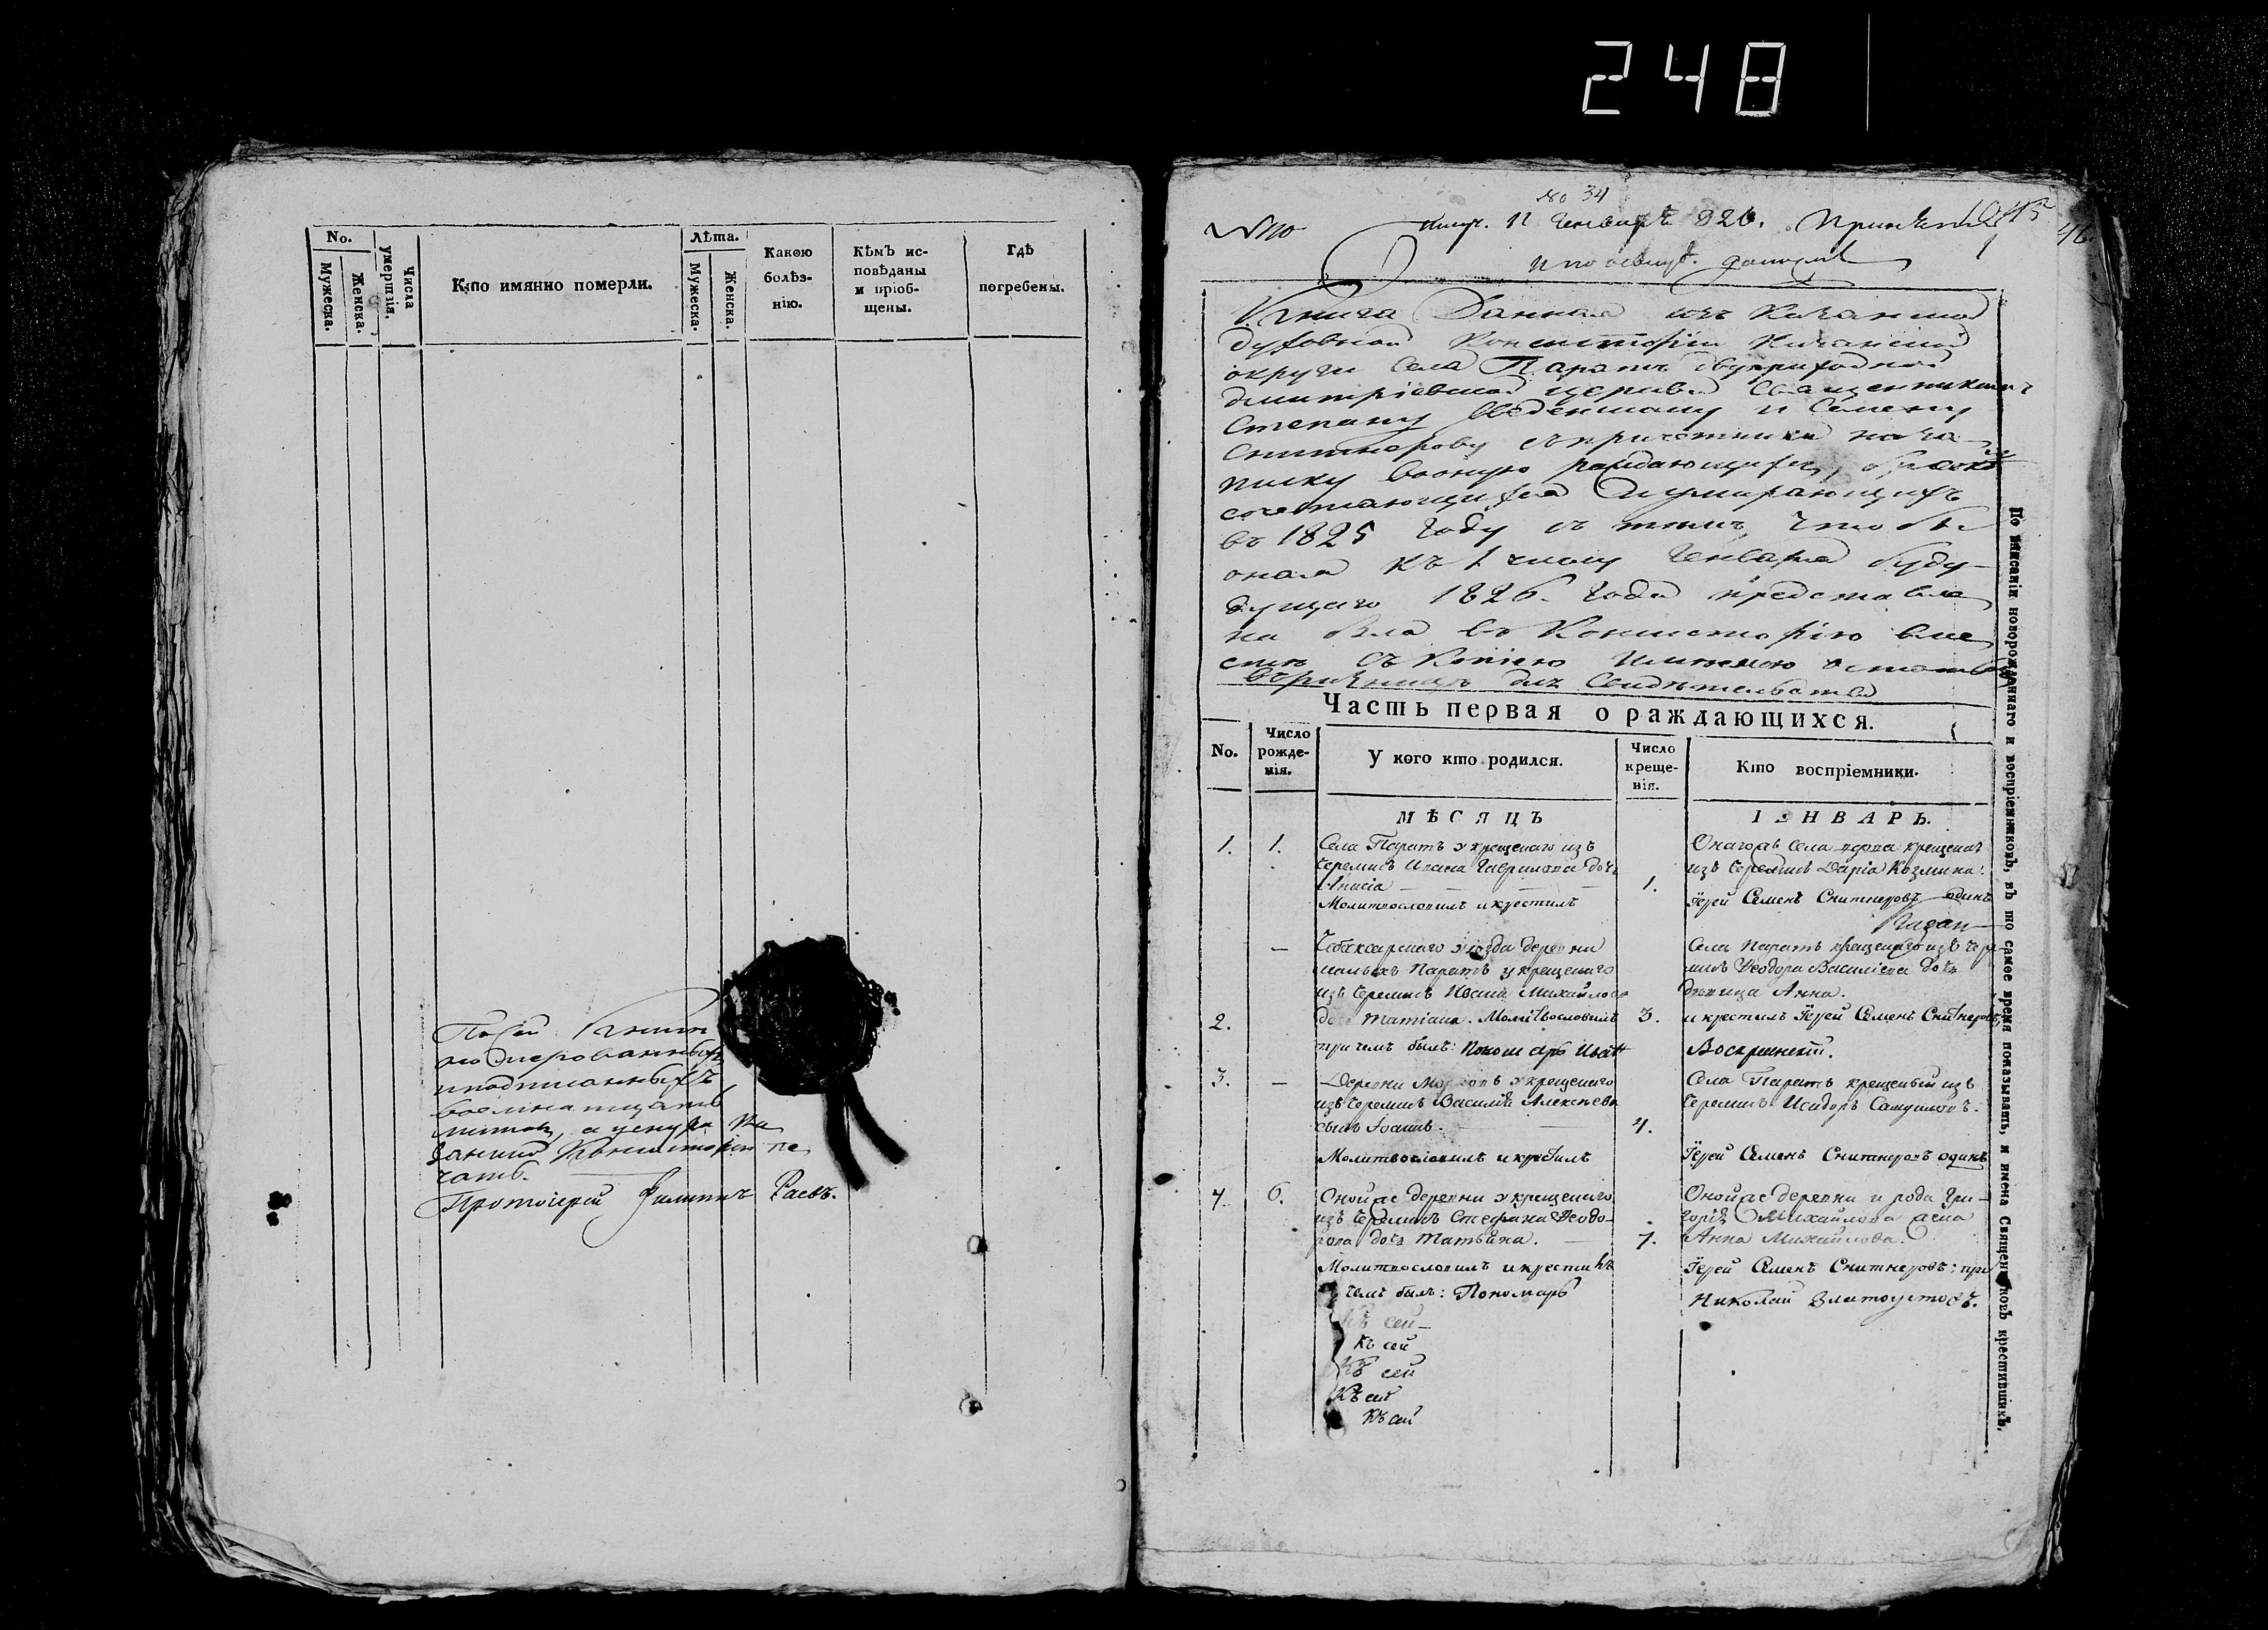 248
No.
Мужеска.
Женска.
Числа умершiя.
Кто имянно померли.
Лѣта.
Мужеска.
Женска.
Какою
болѣз-
нiю.
Кѣмъ ис-
повѣданы
и прiоб-
щены.
Гдѣ
погребены.
По сей книги
подписанныхъ
листовъ
Консисторiи пе
чать.
Протоiерей Филиппъ Раевъ.
No 34
Получ. 11 Генваря 826.
46
Книга Данная изъ Казанской
духовной Консисторiи Казанской
округи Села Паратъ двуприходной
Димитрiевской церкви Священникамъ
Степану Введенскому и Семену
Снитнерову съ причетники на за-
писку во оную раждающихся, бракомъ
сочетающихся и умирающихъ
въ 1825 году съ тѣмъ, что бы
оная къ 1 числу Генваря буду-
дущаго 1826. года представле
на была въ Консисторiю вме
сте съ Копiею
для Свидѣтельства
Часть первая о раждающихся.
No.
Число
рожде-
нiя.
У кого кто родился.
Число
креще-
нiя.
Кто воспрiемники.
МѢСЯЦЪ
IЕНВАРЬ.
1. 1. Села Паратъ у крещенаго изъ
Черемисъ Ивана Гаврилова дочь
Анисiя
Молитвословилъ и крестилъ
1.
Онагожъ села крещеная
изъ Черемисъ Дарiя Козмина.
Iерей Семенъ Снитнеровъ одинъ
2. — Чебаксарскаго уѣзда деревни
малыхъ Паратъ у крещенаго
изъ Черемисъ Ивана Михайлова
дочь Татiана. Молитвословилъ
при чемъ былъ: Пономарь Иванъ
3.
Села Паратъ крещенаго изъ Чере
мисъ Ѳеодора Васильева дочь
дѣвица Анна.
и крестилъ Iерей Семенъ Снитнеровъ,
Воскресенскiй.
3. — Деревни у крещенаго
изъ Черемисъ Василiя Алексѣева
сынъ Iоаннъ.
Молитвословилъ и крестилъ
4.
Села Паратъ крещеный изъ
Черемисъ Исидоръ
Iерей Семенъ Снитнеровъ одинъ
4. 6. Оной же деревни у крещенаго
изъ Черемисъ Стефана Ѳеодо-
рова дочь Татьяна.
Молитвословилъ и крестилъ
чемъ былъ: Пономарь
7.
Оной же деревни и рода Гри-
горiя Михайлова жена
Анна Михайлова.
Iерей Семенъ Снитнеровъ; при
Николай Златоустовъ.
Къ сей
Къ сей
Къ сей
Къ сей
Къ сей
По писанiи новорожденнаго и воспрiемниковъ, въ то самое время показывать, и имена Священниковъ крестившихъ.